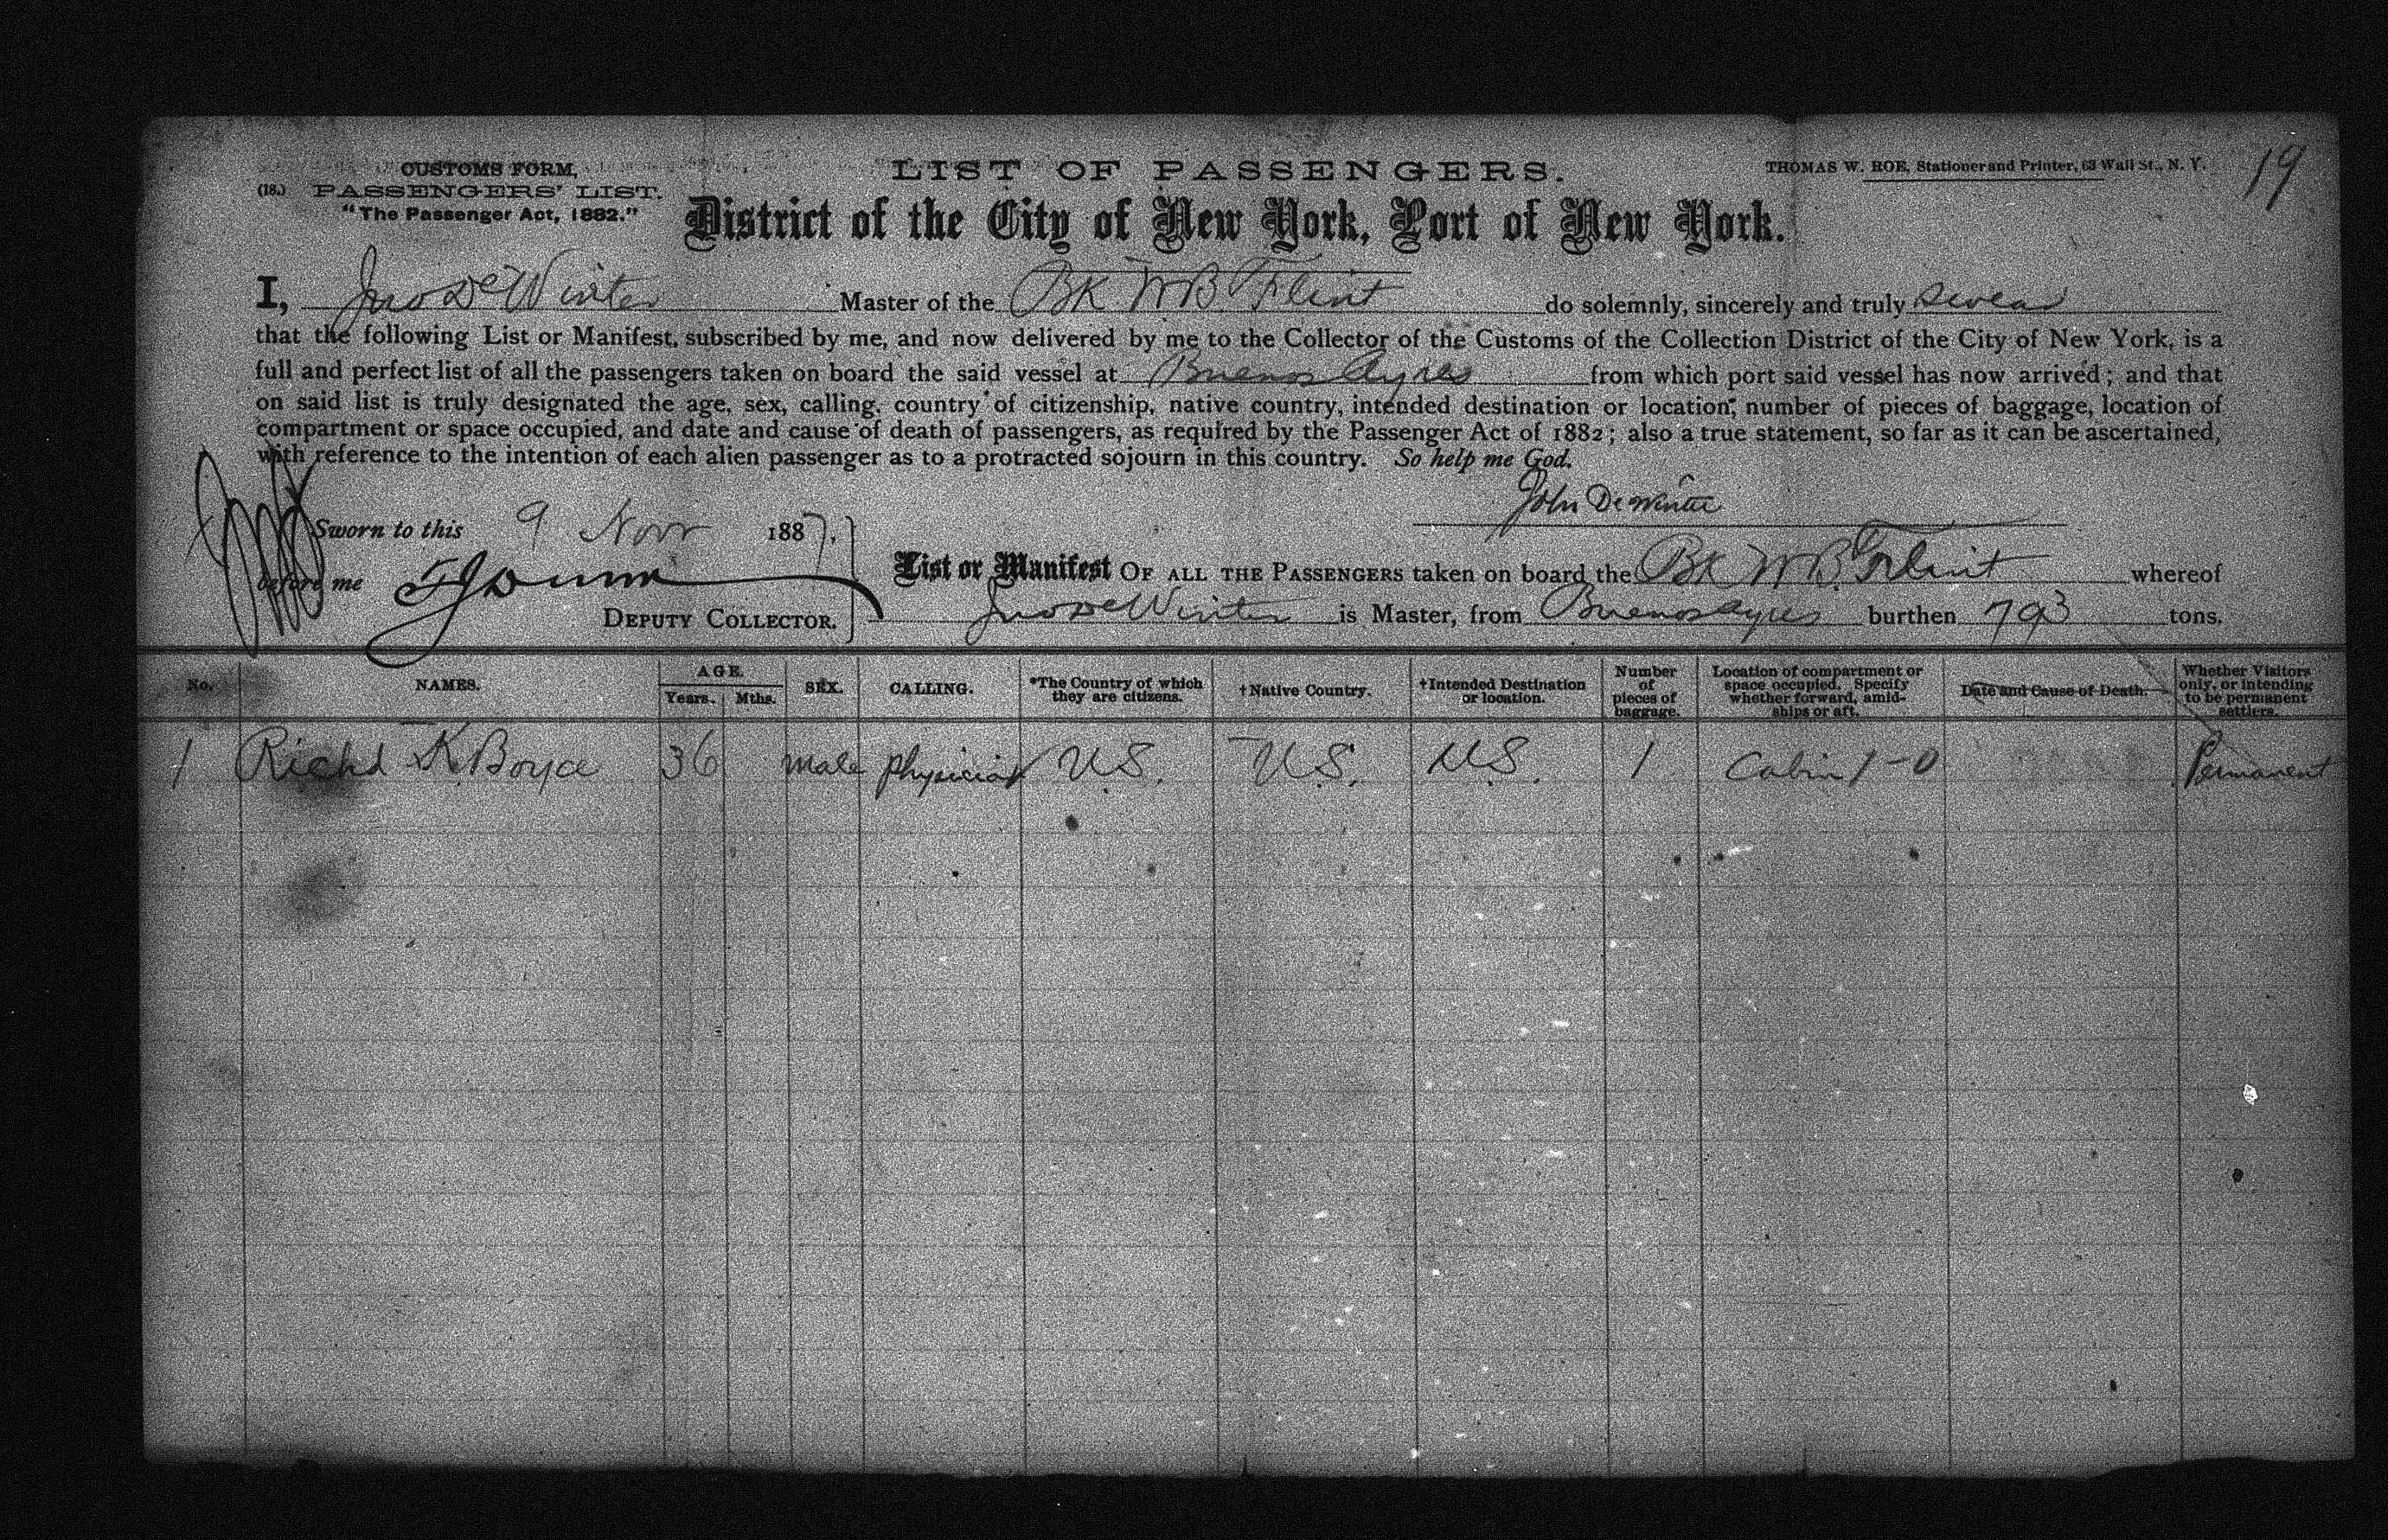 19
CUSTOMS FORM,
(18.) PASSENGERS' LIST.
"The Passenger Act, 1882."
LIST OF PASSENGERS.
THOMAS W. ROE, Stationer and Printer, 63 Wall St., N. Y.
District of the City of New York, Port of New York.
I, Jno De Winter Master of the BK W B Flint do solemnly, sincerely and truly swear
that the following List or Manifest, subscribed by me, and now delivered by me to the Collector of the Customs of the Collection District of the City of New York, is a
full and perfect list of all the passengers taken on board the said vessel at Buenos Ayres from which port said vessel has now arrived; and that
on said list is truly designated the age, sex, calling, country of citizenship, native country, intended destination or location, number of pieces of baggage, location of
compartment or space occupied, and date and cause of death of passengers, as required by the Passenger Act of 1882; also a true statement, so far as it can be ascertained,
with reference to the intention of each alien passenger as to a protracted sojourn in this country. So help me God.
John De Winter
Sworn to this 9 Novr 1887,
before me
DEPUTY COLLECTOR.
List or Manifest OF ALL THE PASSENGERS taken on board the BK W B Flint whereof
Jno De Winter is Master, from Buenos Ayres burthen 793 tons.
No. NAMES. AGE. Years. Mths. SEX. CALLING. *The Country of which they are citizens. †Native Country. †Intended Destination or location. Number of pieces of baggage. Location of compartment or space occupied. Specify whether forward, amidships or aft. Date and Cause of Death. Whether Visitors only, or intending to be permanent settlers.
1 Richd K Boyce 36 male physician U.S. U.S. U.S. 1 Cabin 1-0 Permanent